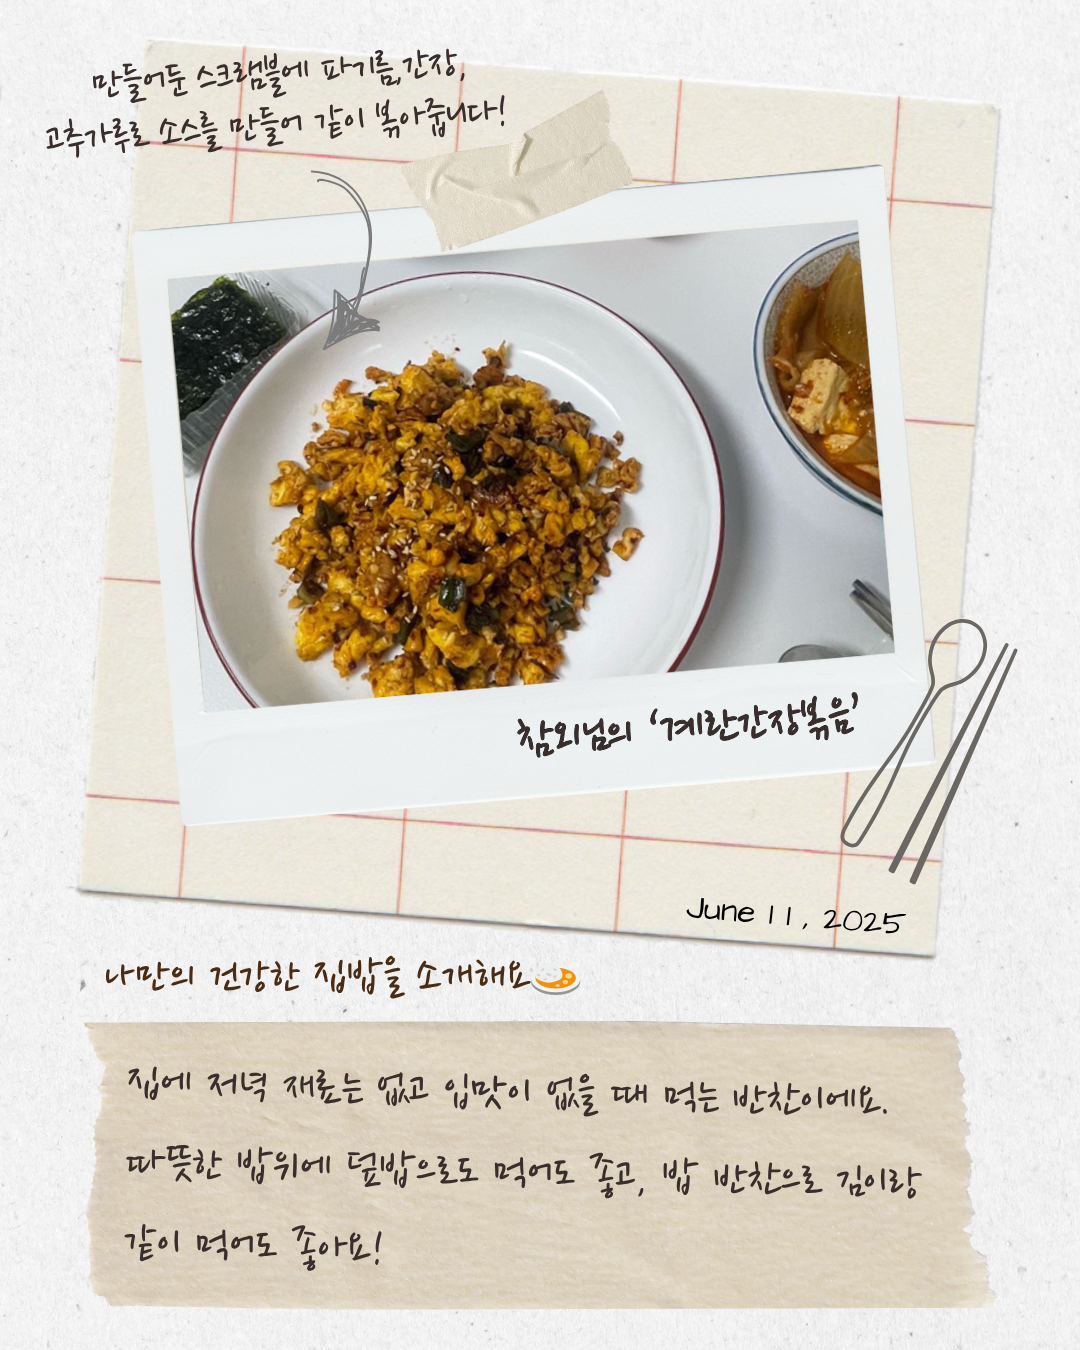 만들어둔 스크램블에 파기름,간장,
고추가루로 소스를 만들어 같이 볶아줍니다!
참외님의 ‘계란간장볶음’
June 11, 2025
나만의 건강한 집밥을 소개해요
집에 저녁 재료는 없고 입맛이 없을 때 먹는 반찬이에요.
따뜻한 밥위에 덮밥으로도 먹어도 좋고, 밥 반찬으로 김이랑
같이 먹어도 좋아요!